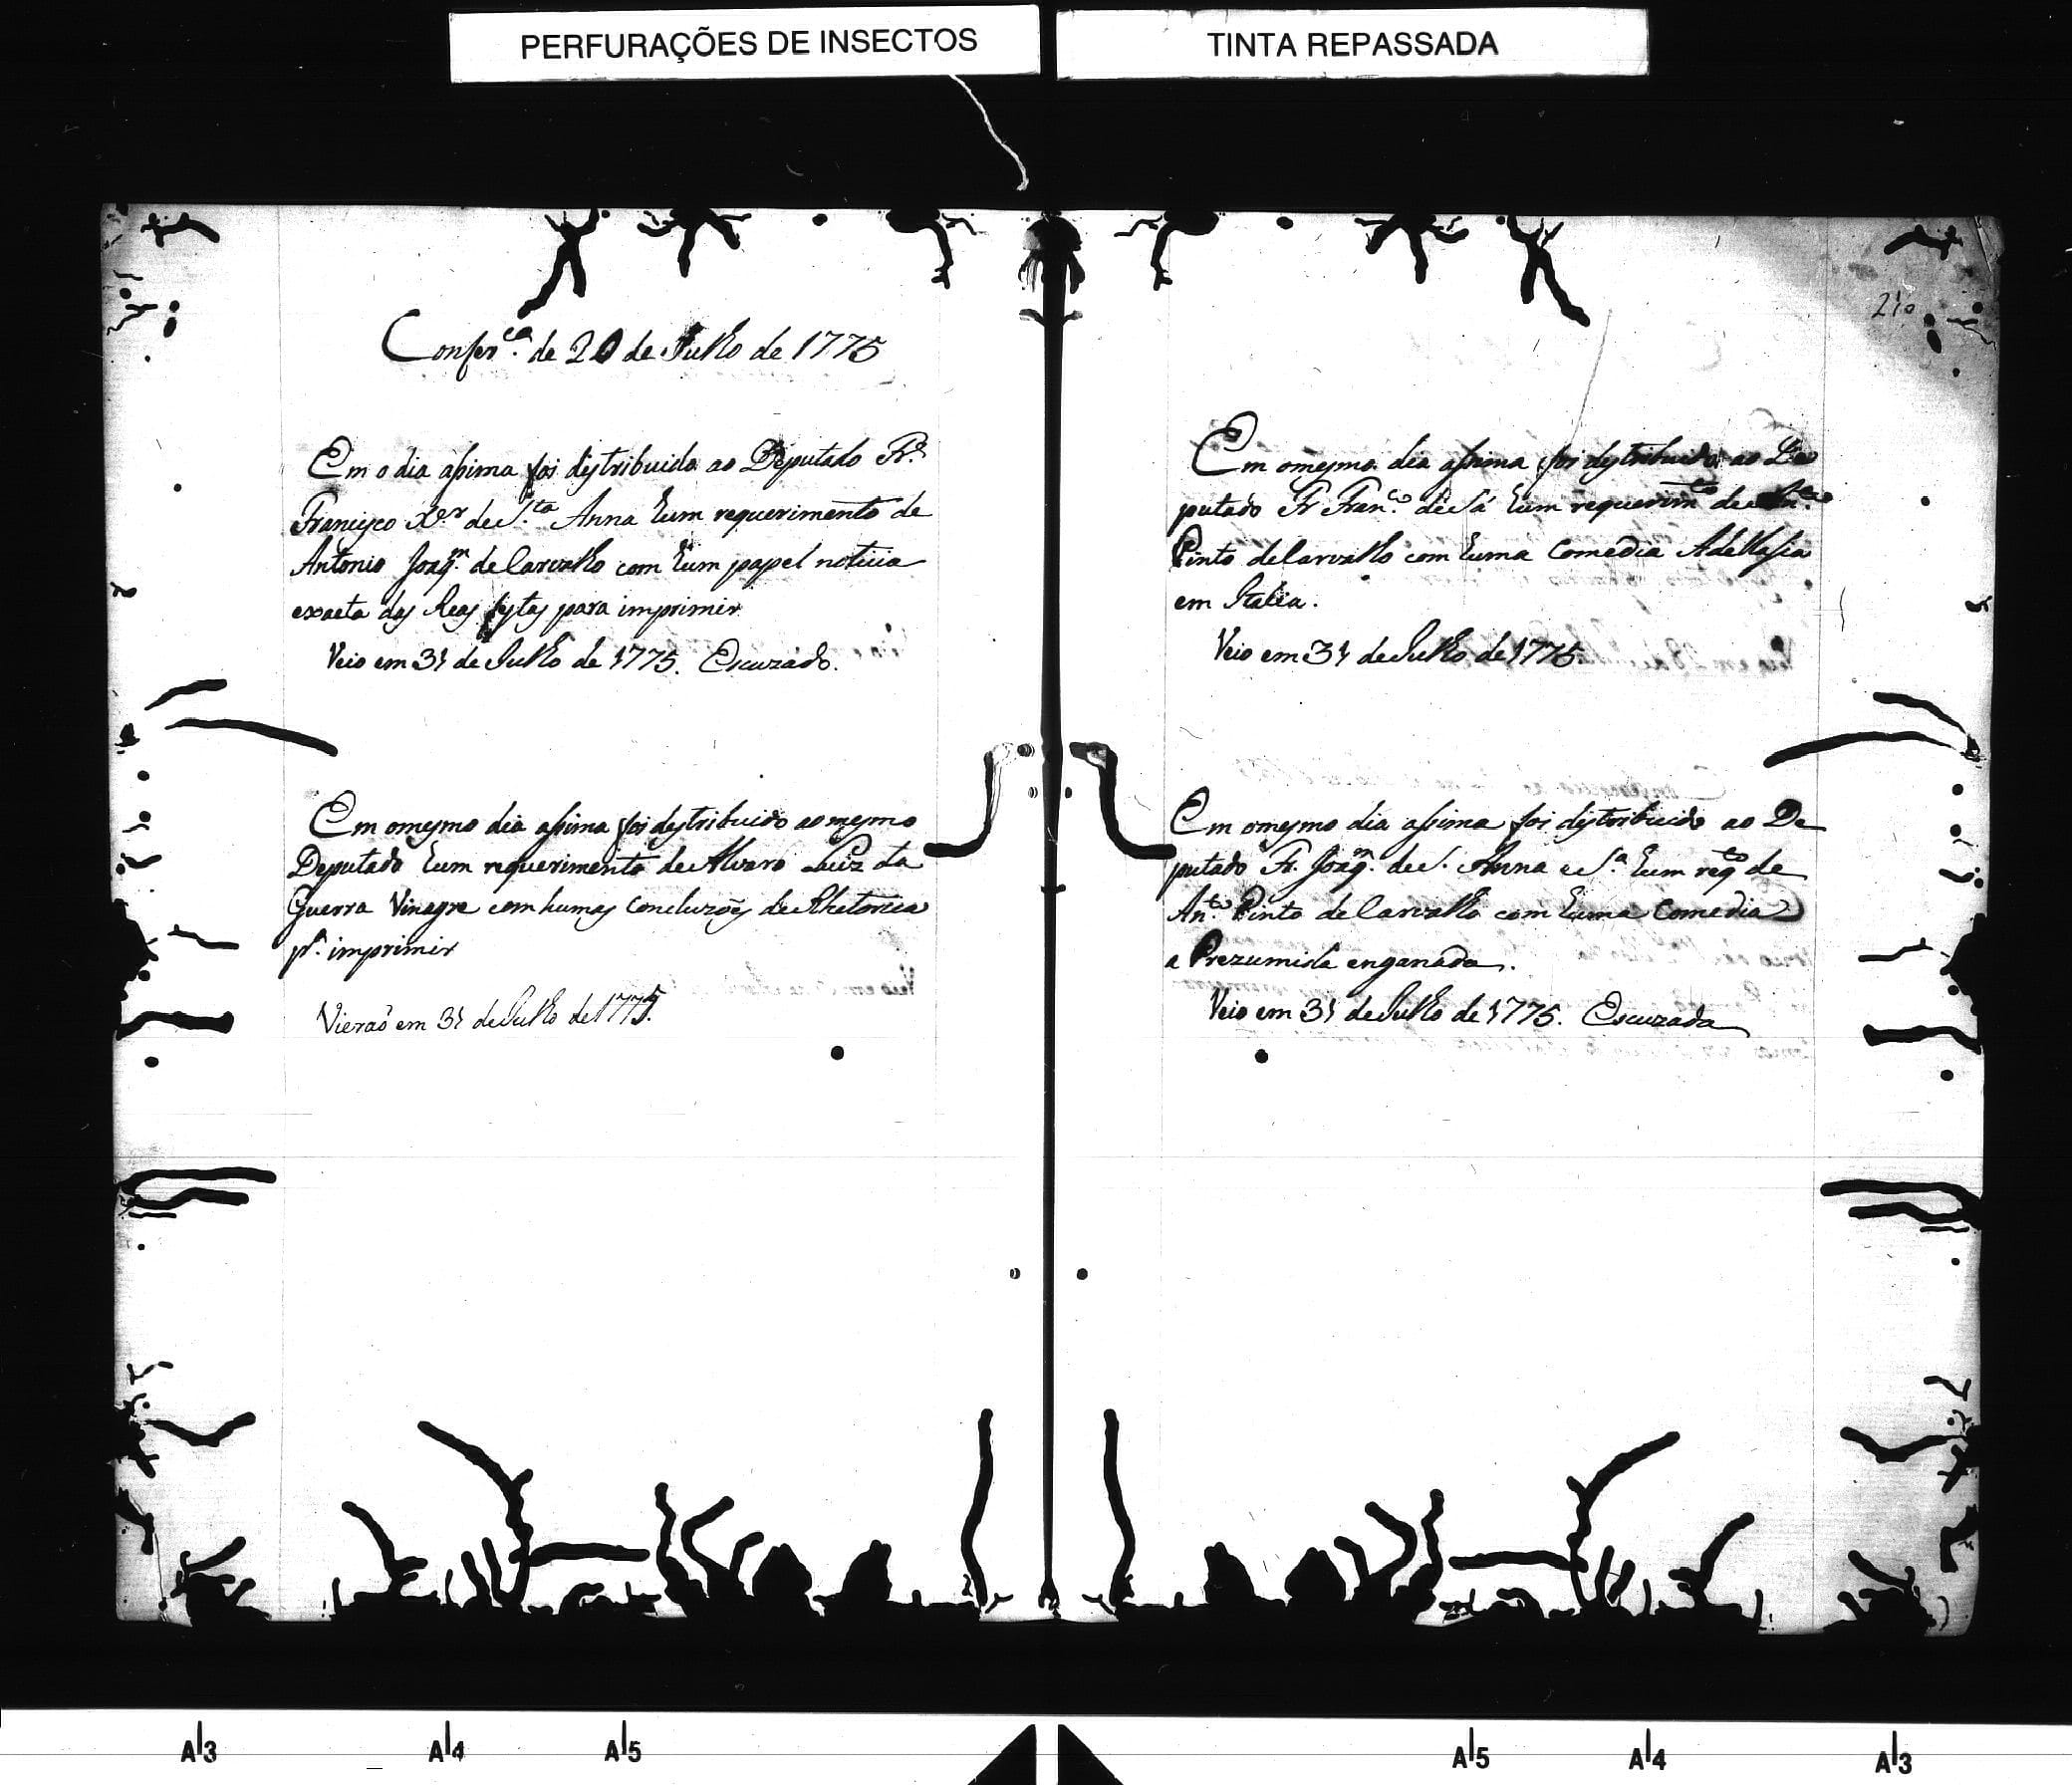 PERFURAÇÕES DE INSECTOS
TINTA REPASSADA
Confer.ca de 20 de Julho de 1775
Em o dia asima foi distribuido ao Deputado Fr.
Francisco X.er de S.ta Anna hum requerimento de
Antonio Joaq.m de Carvalho com hum papel noticia
exacta das Reas festas para imprimir
Veio em 31 de Julho de 1775. Escuzado.
Em o mesmo dia asima foi destribuido ao mesmo
Deputado hum requerimento de Alvaro Luiz da
Guerra Vinagre com humas Concluzoẽs de Rhetorica
p.a imprimir
Vieraõ em 31 de Julho de 1775.
210
Em o mesmo dia assima foi destribuido ao De
putado Fr Fran.co de Sá hum requerim.to de An.to
Pinto de Carvalho com huma Comedia Adellasia
em Italia.
Veio em 31 de Julho de 1775.
Em o mesmo dia assima foi distribuido ao De
putado Fr. Joaq.m de S. Anna e S.a hum reqto de
An.to Pinto de Carvalho com huma Comedia
a Prezumida enganada.
Veio em 31 de Julho de 1775. Escuzada
A3 A4 A5 A5 A4 A3